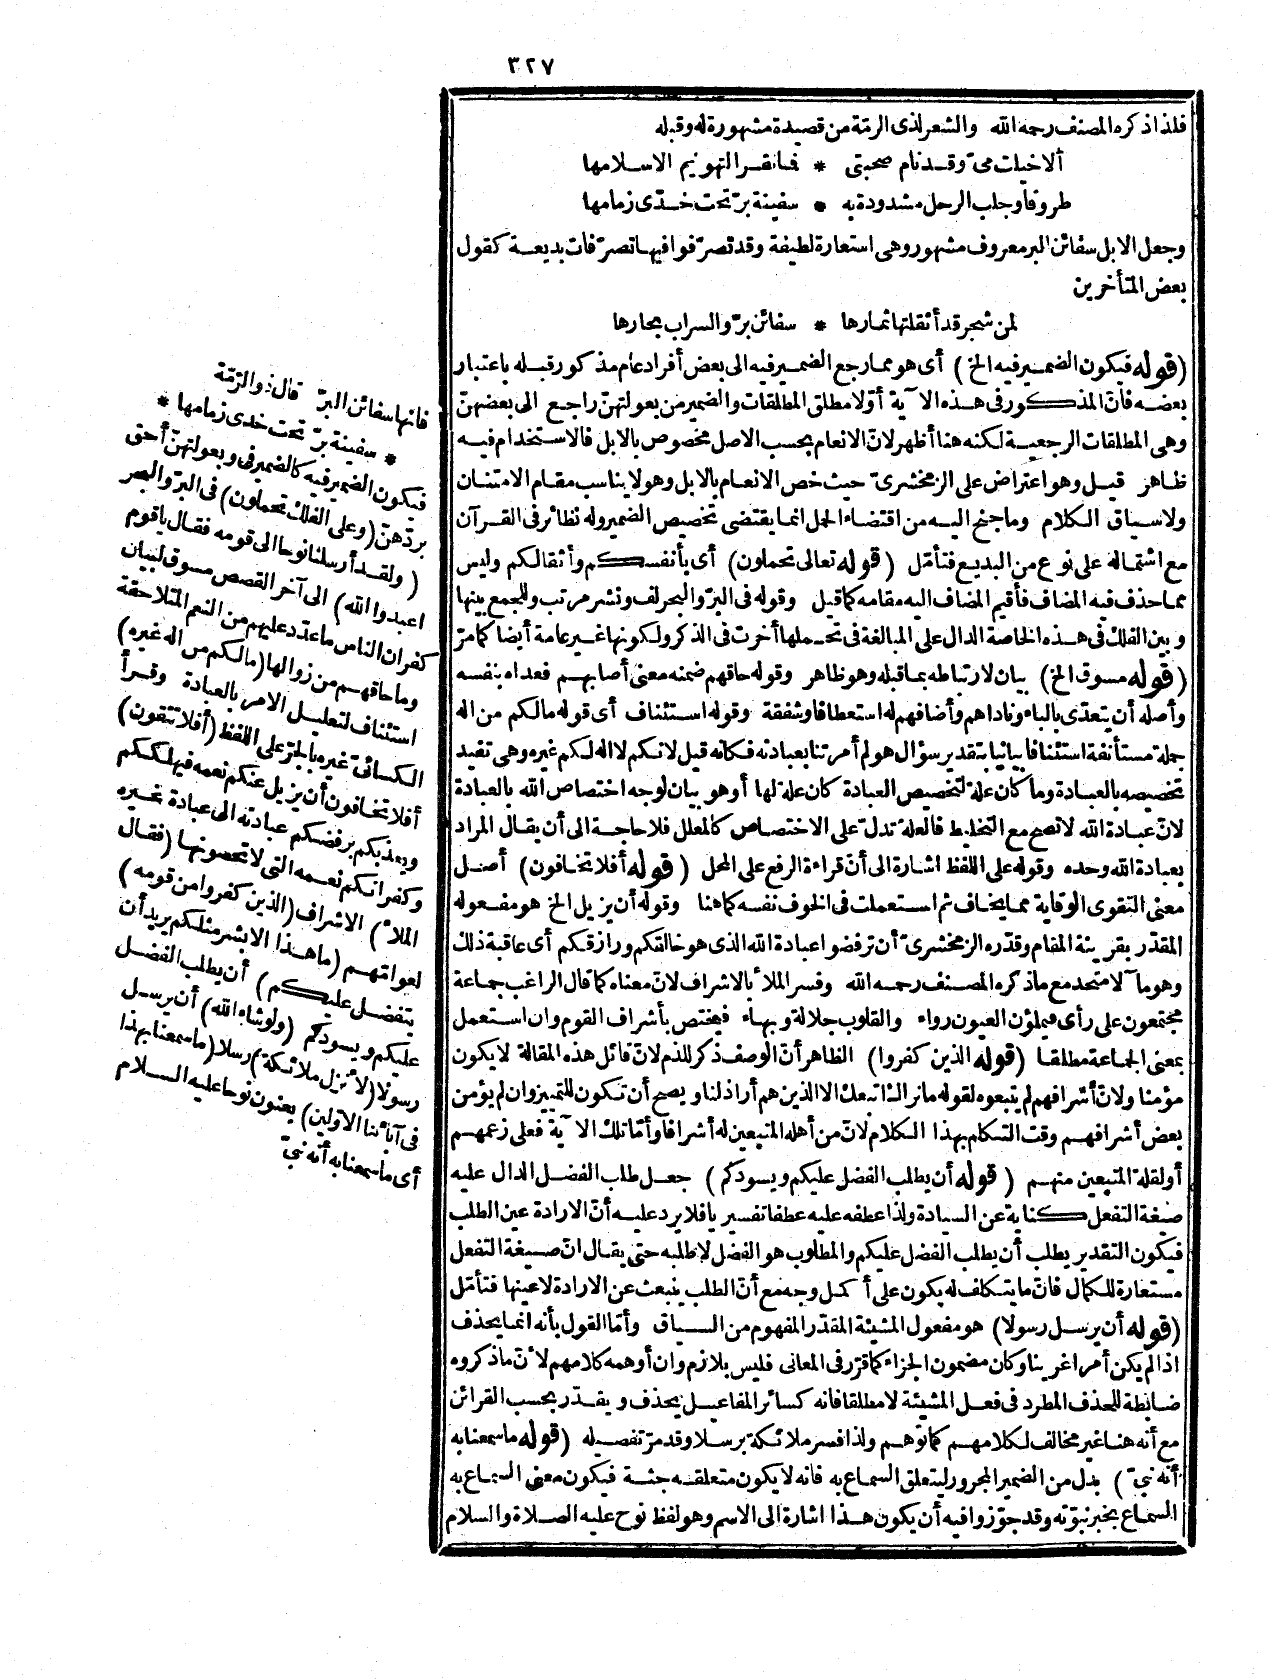 ٣٢٧
فلذا ذكره المصنف رحمه الله والشعر لذى الرمّة من قصيدة مشهورة له وقبله
ألا خيلت مىّ وقد نام صحبتى * فما نفر التهويم الا سلامها
طروقا وجلب الرحل مشدودة به * سفينة برّ تحت خدّى زمامها
وجعل الابل سفائن البر معروف مشهور وهى استعارة لطيفة وقد تصرّفوا فيها تصرّفات بديعة كقول
بعض المتأخرين
لمن شجر قد أثقلتها ثمارها * سفائن برّ والسراب بحارها
(قوله فيكون الضمير فيه الخ) أى هو مما رجع الضمير فيه الى بعض أفراد عام مذكور قبله باعتبار
بعضه فانّ المذكور فى هذه الآية أوّلا مطلق المطلقات والضمير من بعولتهنّ راجع الى بعضهنّ
وهى المطلقات الرجعية لكنه هنا أظهر لانّ الانعام بحسب الاصل مخصوص بالابل فالاستخدام فيه
ظاهر قيل وهو اعتراض على الزمخشرىّ حيث خص الانعام بالابل وهو لا يناسب مقام الامتنان
ولا سياق الكلام وما جنح اليه من اقتضاء الحمل انما يقتضى تخصيص الضمير وله نظائر فى القرآن
مع اشتماله على نوع من البديع فتأمّل (قوله تعالى تحملون) أى بأنفسكم وأثقالكم وليس
مما حذف فيه المضاف فأقيم المضاف اليه مقامه كما قيل وقوله فى البرّ والبحر لف ونشر مرتب وللجمع بينها
وبين الفلك فى هذه الخاصة الدال على المبالغة فى تحملها أخرت فى الذكر ولكونها غير عامة أيضا كما مرّ
(قوله مسوق الخ) بيان لارتباطه بما قبله وهو ظاهر وقوله حاقهم ضمنه معنى أصابهم فعداه بنفسه
وأصله أن يتعدّى بالباء وناداهم وأضافهم له استعطافا وشفقة وقوله استئناف أى قوله مالكم من اله
جملة مستأنفة استئنافا بيانيا بتقدير سؤال هو لم أمرتنا بعبادته فكانه قيل لانكم لا اله لكم غيره وهى تفيد
تخصيصه بالعبادة وما كان علة لتخصيص العبادة كان علة لها أو هو بيان لوجه اختصاص الله بالعبادة
لانّ عبادة الله لا تصح مع التخليط فالعلة تدلّ على الاختصاص كالمعلل فلا حاجة الى أن يقال المراد
بعبادة الله وحده وقوله على اللفظ اشارة الى أنّ قراءة الرفع على المحل (قوله أفلا تخافون) أصل
معنى التقوى الوقاية مما يخاف ثم استعملت فى الخوف نفسه كما هنا وقوله أن يزيل الخ هو مفعوله
المقدّر بقرينة المقام وقدّره الزمخشرىّ أن ترفضوا عبادة الله الذى هو خالقكم ورازقكم أى عاقبة ذلك
وهو مآلا متحد مع ما ذكره المصنف رحمه الله وفسر الملأ بالاشراف لانّ معناه كما قال الراغب جماعة
مجتمعون على رأى فيملؤن العيون رواء والقلوب جلالة وبهاء فيختص بأشراف القوم وان استعمل
بمعنى الجماعة مطلقا (قوله الذين كفروا) الظاهر أنّ الوصف ذكر للذم لانّ قائل هذه المقالة لا يكون
مؤمنا ولانّ أشرافهم لم يتبعوه لقوله ما نراك اتبعك الا الذين هم أراذلنا ويصح أن تكون للتمييز وان لم يؤمن
بعض أشرافهم وقت التكلم بهذا الكلام لانّ من أهله المتبعين له أشرافا وأمّا تلك الآية فعلى زعمهم
أو لقلة المتبعين منهم (قوله أن يطلب الفضل عليكم ويسودكم) جعل طلب الفضل الدال عليه
صيغة التفعل كناية عن السيادة ولذا عطفه عليه عطفا تفسيريا فلا يرد عليه أنّ الارادة عين الطلب
فيكون التقدير يطلب أن يطلب الفضل عليكم والمطلوب هو الفضل لا طلبه حتى يقال انّ صيغة التفعل
مستعارة للكمال فانّ ما يتكلف له يكون على أكمل وجه مع أنّ الطلب ينبعث عن الارادة لا عينها فتأمّل
(قوله أن يرسل رسولا) هو مفعول المشيئة المقدّر المفهوم من السياق وأمّا القول بأنه انما يحذف
اذا لم يكن أمرا غريبا وكان مضمون الجزاء كما قرّر فى المعانى فليس بلازم وان أوهمه كلامهم لأنّ ما ذكروه
ضابطة للحذف المطرد فى فعل المشيئة لا مطلقا فانه كسائر المفاعيل يحذف ويقدّر بحسب القرائن
مع أنه هنا غير مخالف لكلامهم كما توهم ولذا فسر ملائكة برسلا وقد مرّ تفصيله (قوله ما سمعنا به
أنه نبىّ) بدل من الضمير المجرور ليتعلق السماع به فانه لا يكون متعلقه جثة فيكون معنى السماع به
السماع بخبر نبوّته وقد جوّزوا فيه أن يكون هذا اشارة الى الاسم وهو لفظ نوح عليه الصلاة والسلام
فانها سفائن البرّ قال ذو الرّمّة
* سفينة برّ تحت خدى زمامها *
فيكون الضمير فيه كالضمير فى وبعولتهنّ أحق
بردّهنّ (وعلى الفلك تحملون) فى البرّ والبحر
(ولقد أرسلنا نوحا الى قومه فقال ياقوم
اعبدوا الله) الى آخر القصص مسوق لبيان
كفران الناس ما عدّد عليهم من النعم المتلاحقة
وما حاقهم من زوالها (مالكم من اله غيره)
استئناف لتعليل الامر بالعبادة وقرأ
الكسائىّ غيره بالجرّ على اللفظ (أفلا تتقون)
أفلا تخافون أن يزيل عنكم نعمه فيهلككم
ويعذبكم برفضكم عبادته الى عبادة غيره
وكفرانكم نعمه التى لا تحصونها (فقال
الملأ) الاشراف (الذين كفروا من قومه)
لعوامّهم (ما هذا الا بشر مثلكم يريد أن
يتفضل عليكم) أن يطلب الفضل
عليكم ويسودكم (ولو شاء الله) أن يرسل
رسولا (لأنزل ملائكة) رسلا (ما سمعنا بهذا
فى آبائنا الاوّلين) يعنون نوحا عليه السلام
أى ما سمعنا به أنه نبىّ